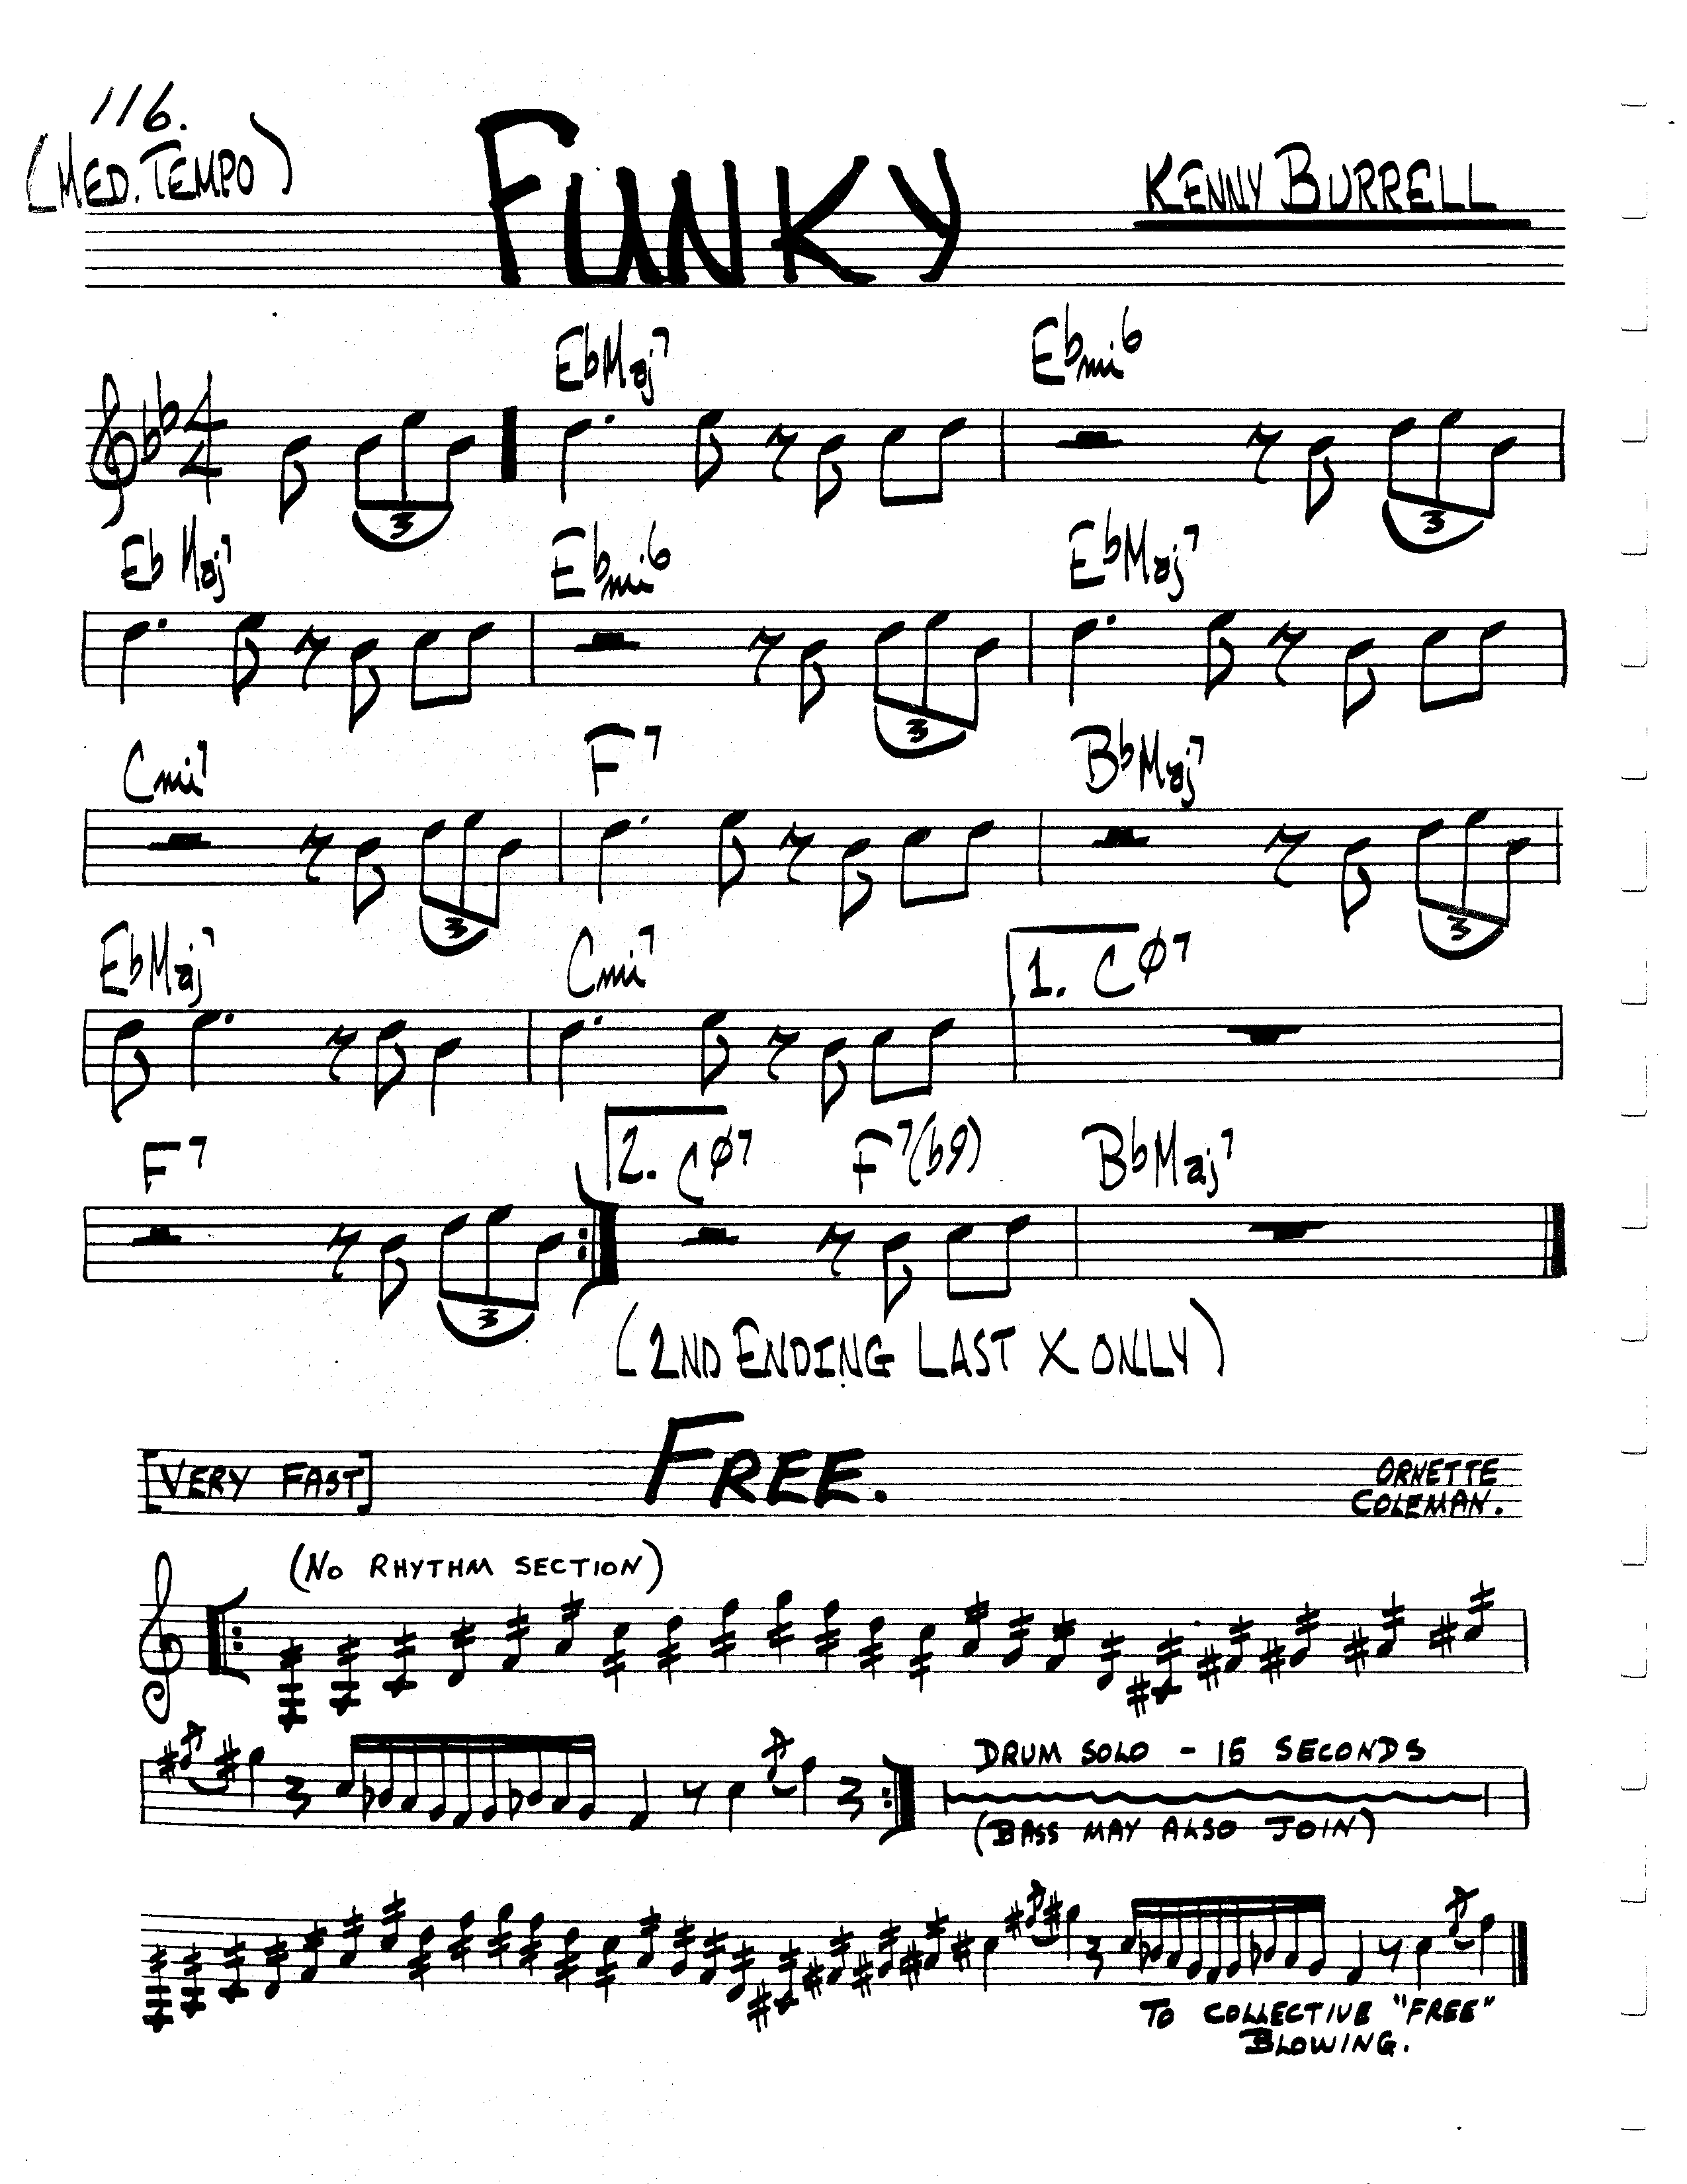 116.
(MED. TEMPO) FUNKY KENNY BURRELL
EbMaj7 Ebmi6
4 4
3 3
Eb Maj7 Ebmi6 EbMaj7
3
Cmi7 F7 BbMaj7
3 3
EbMaj7 Cmi7 1. CØ7
F7 2. CØ7 F7(b9) BbMaj7
3
(2ND ENDING LAST X ONLY)
[VERY FAST] FREE. ORNETTE
COLEMAN.
(NO RHYTHM SECTION)
DRUM SOLO - 15 SECONDS
(BASS MAY ALSO JOIN)
TO COLLECTIVE "FREE"
BLOWING.